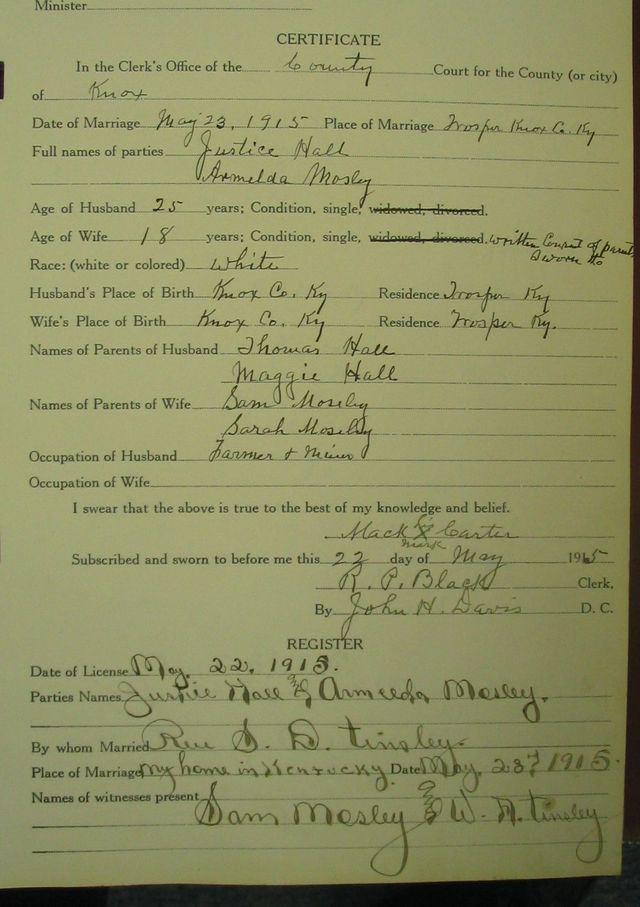 Minister
CERTIFICATE
In the Clerk's Office of the County Court for the County (or city)
of Knox
Date of Marriage May 23, 1915 Place of Marriage Trosper Knox Co. Ky
Full names of parties Justice Hall
Armelda Mosley
Age of Husband 25 years; Condition, single, widowed, divorced.
Age of Wife 18 years; Condition, single, widowed, divorced. written Consent of parents
Sworn to
Race: (white or colored) white
Husband's Place of Birth Knox Co. Ky Residence Trosper Ky
Wife's Place of Birth Knox Co. Ky Residence Trosper Ky.
Names of Parents of Husband Thomas Hall
Maggie Hall
Names of Parents of Wife Sam Mosely
Sarah Mosely
Occupation of Husband Farmer & Miner
Occupation of Wife
I swear that the above is true to the best of my knowledge and belief.
Mack his x mark Carter
Subscribed and sworn to before me this 22 day of May 1915
R. P. Black Clerk.
By John H. Davis D. C.
REGISTER
Date of License May. 22. 1915.
Parties Names Justice Hall & Armelda Mosley.
By whom Married Rev S. D. Tinsley.
Place of Marriage my home in Kentucky. Date May. 23 1915.
Names of witnesses present Sam Mosley & W. H. Tinsley